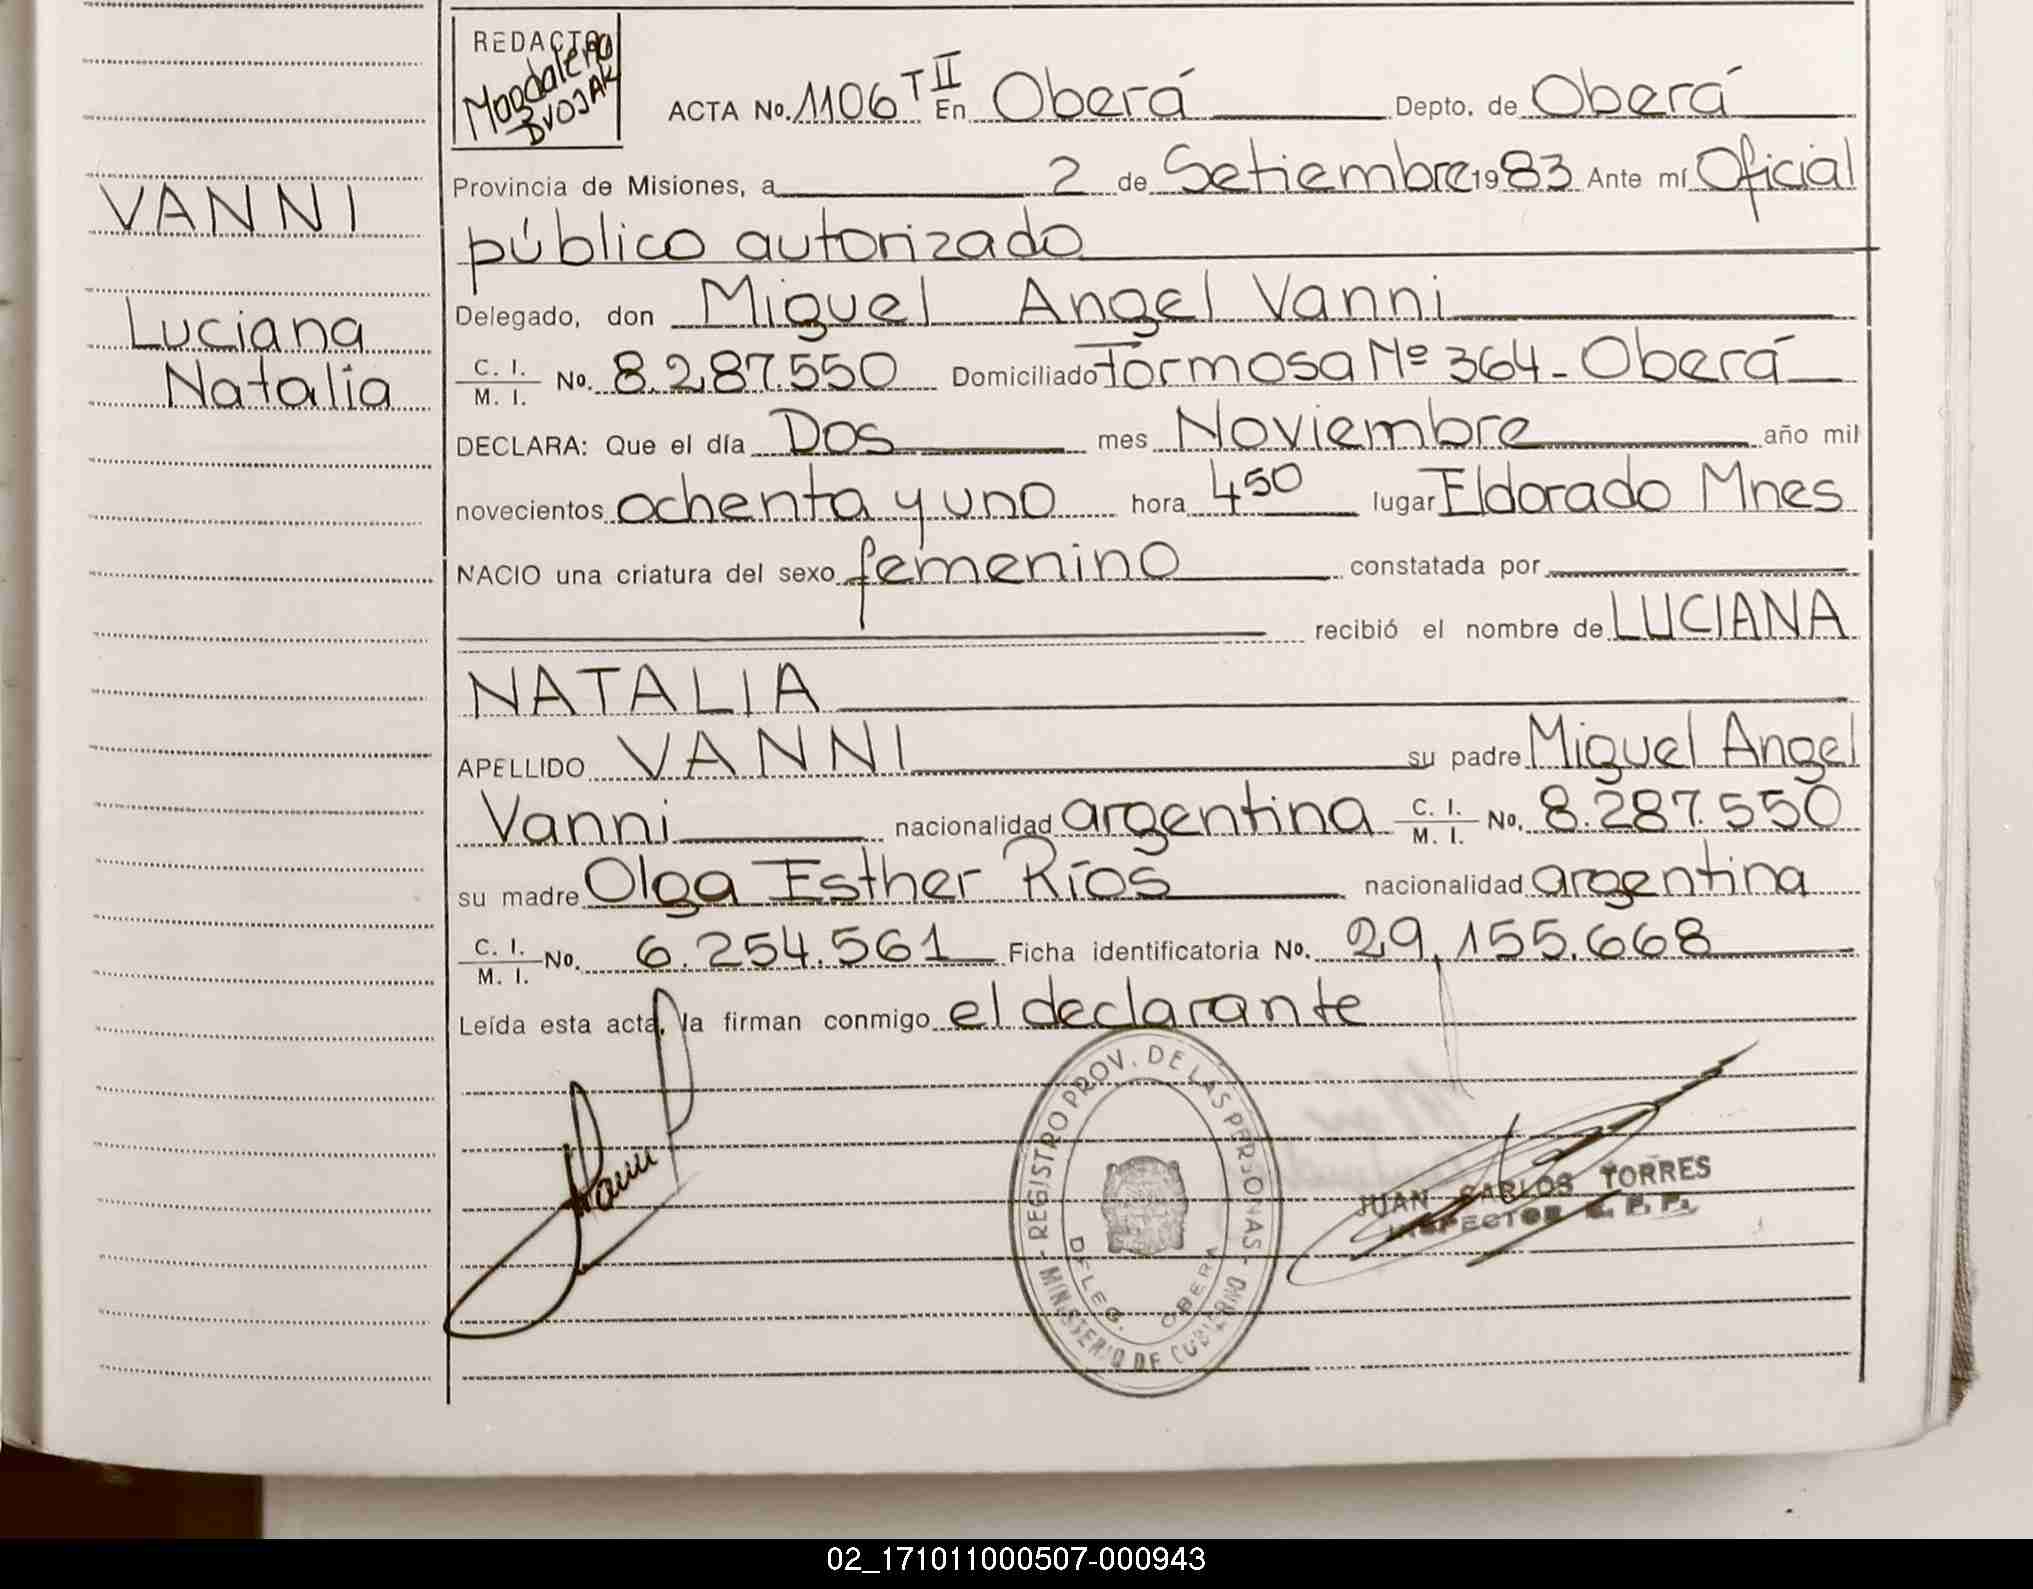 REDACTO
Magdalena
DVOJAK
ACTA No. 1106 T II En Oberá Depto. de Oberá
Provincia de Misiones, a 2 de Setiembre 1983 Ante mí Oficial
público autorizado
Delegado, don Miguel Angel Vanni
C. I.
M. I. No. 8.287.550 Domiciliado Formosa Nº 364 - Oberá
DECLARA: Que el día Dos mes Noviembre año mil
novecientos ochenta y uno hora 4 50 lugar Eldorado Mnes
NACIO una criatura del sexo femenino constatada por
recibió el nombre de LUCIANA
NATALIA
APELLIDO VANNI su padre Miguel Angel
Vanni nacionalidad argentina C. I. M. I. No. 8.287.550
su madre Olga Esther Ríos nacionalidad argentina
C. I.
M. I. No. 6.254.561 Ficha identificatoria No. 29.155.668
Leída esta acta, la firman conmigo el declarante
VANNI
Luciana
Natalia
REGISTRO PROV. DE LAS PERSONAS
DELEG. OBERA
MINISTERIO DE GOBIERNO
JUAN CARLOS TORRES
INSPECTOR
02_171011000507-000943